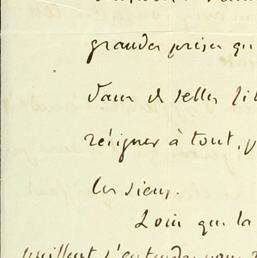 grandes prises qu
dans de telles li
résigner à tout, p
les siens.
Loin que la
s'entendre pour